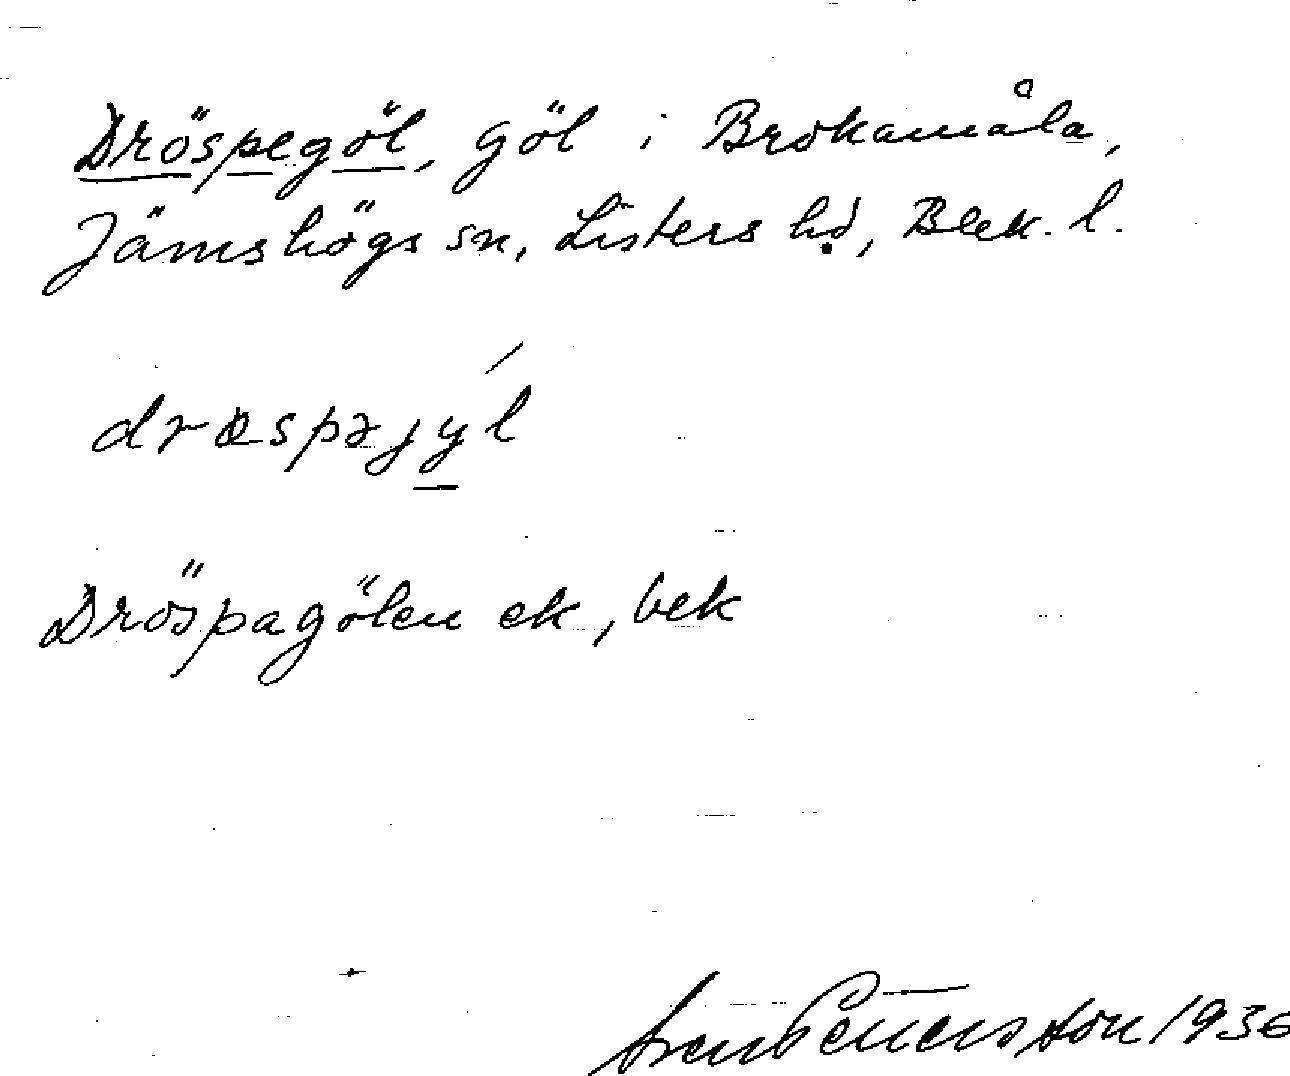 Dröspegöl, göl i Brokamåla,
Jämshögs sn, Listers hd, Blek. l.
dræspəjyl
Dröspagölen ek, bek
Sven Pettersson 1936